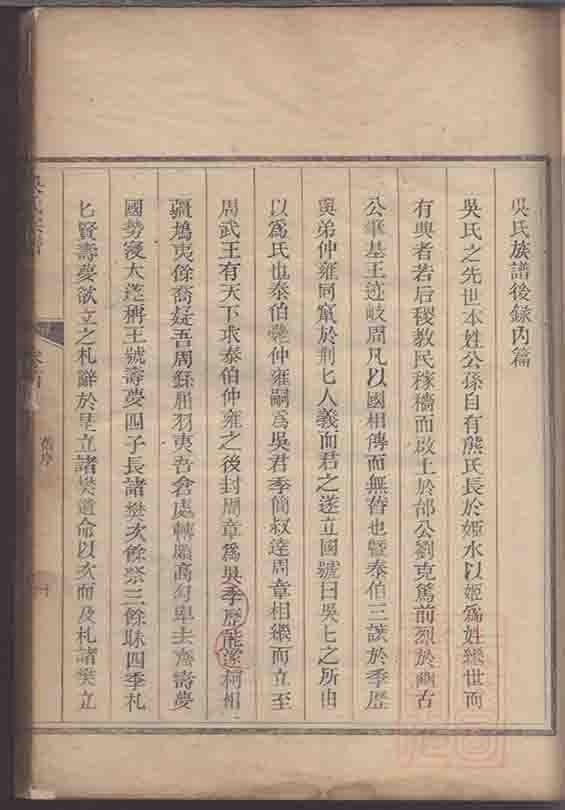 吳氏族譜後錄內篇
吳氏之先世本姓公孫自有熊氏長於姬水以姬爲姓繼世而
有興者若后稷教民稼穡而啟土於邰公劉克篤前烈於豳古
公肇基王迹岐周凡以國相傳而無替也暨泰伯三讓於季歷
與弟仲雍同竄於荆匕人義而君之遂立國號曰吳匕之所由
以爲氏也泰伯薨仲雍嗣爲吳君季簡叔逹周章相繼而立至
周武王有天下求泰伯仲雍之後封周章爲吳季歷熊遂柯相
疆鳩夷餘裔疑吾周繇屈羽夷吾禽處轉頗高勾卑去齊壽夢
國勢寖大遂稱王號壽夢四子長諸樊次餘祭三餘昧四季札
匕賢壽夢欲立之札辭於是立諸樊遺命以次而及札諸樊立
舊序